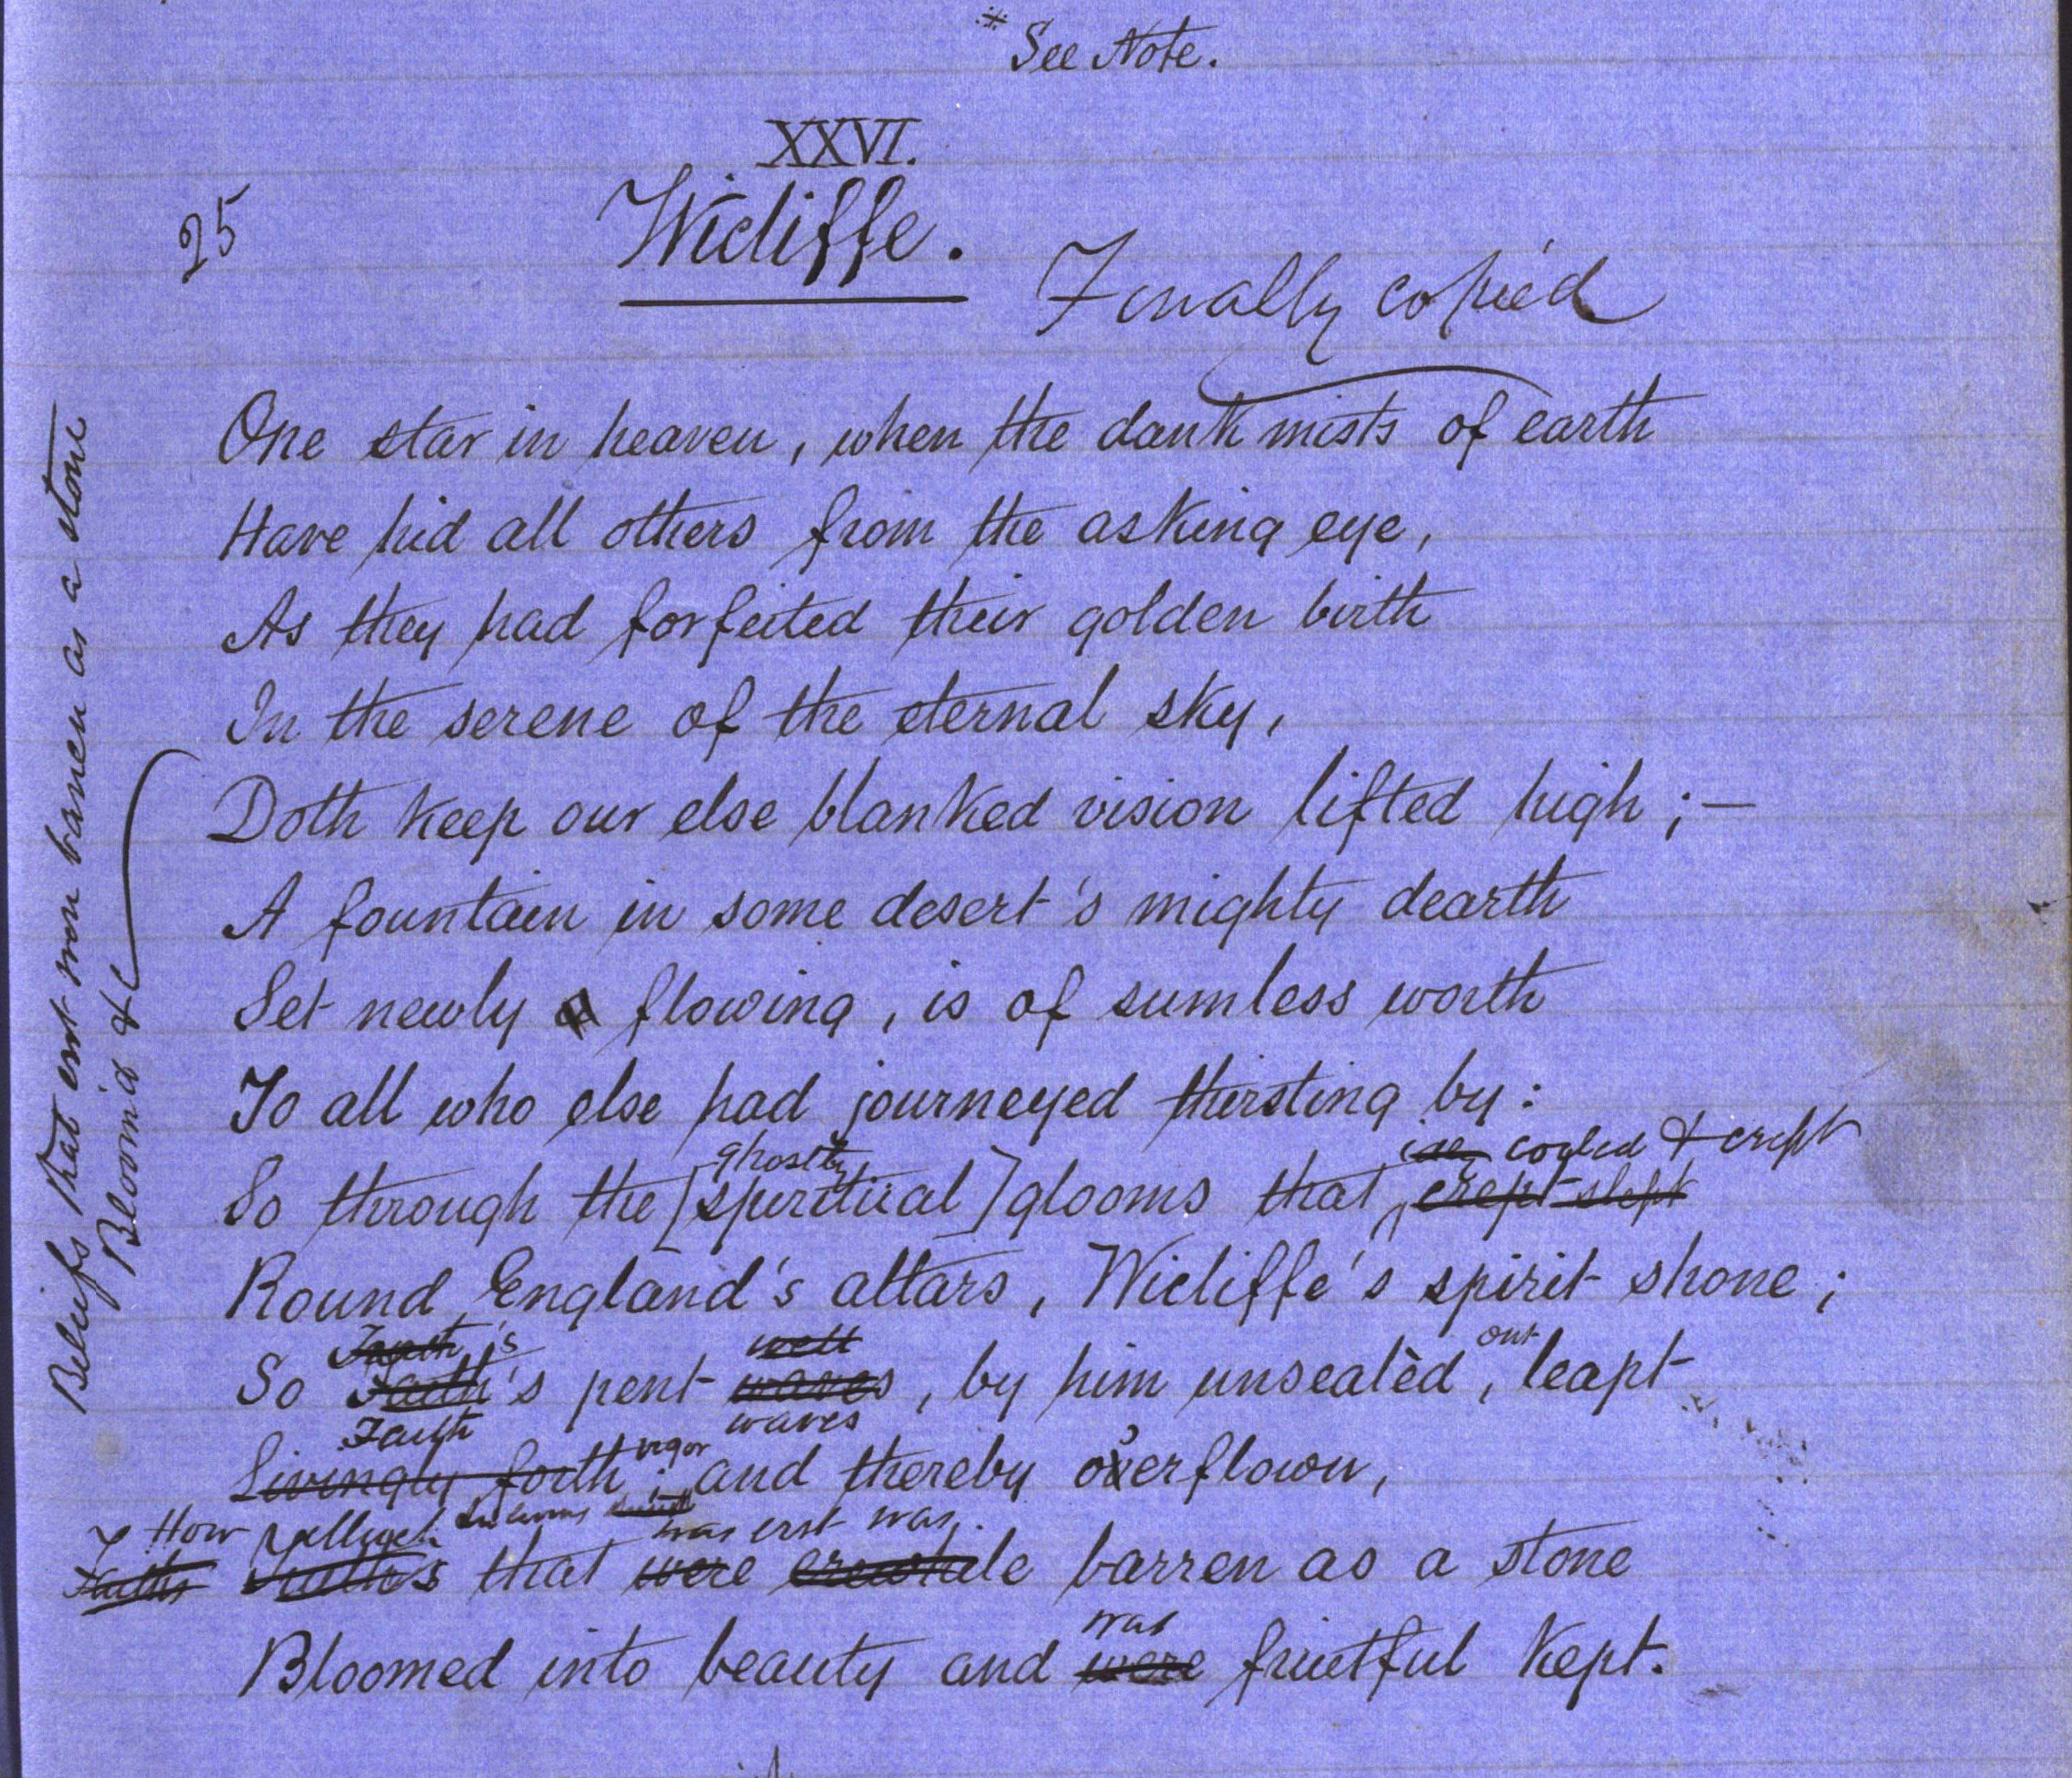 * See Note.
XXVI.
25
Wicliffe.
Finally copied
One star in heaven, when the dank mists of earth
Have hid all others from the asking eye,
As they had forfeited their golden birth
In the serene of the eternal sky,
Doth keep our else blanked vision lifted high;—
A fountain in some desert's mighty dearth
Set newly a flowing, is of sumless worth
To all who else had journeyed thirsting by:
icy cooled & crept
ghostly
So through the [spiritual] glooms that crept slept
Round England's altars, Wicliffe's spirit shone;
Faith's well out
So Faith's pent waves, by him unsealèd, leapt
Faith waves
vigor
Livingly forth; and thereby o'erflown,
How
was erst was
Faiths truths that were erewhile barren as a stone
was
Bloomed into beauty and were fruitful kept.
Beliefs that erst were barren as a stone
Bloom'd &